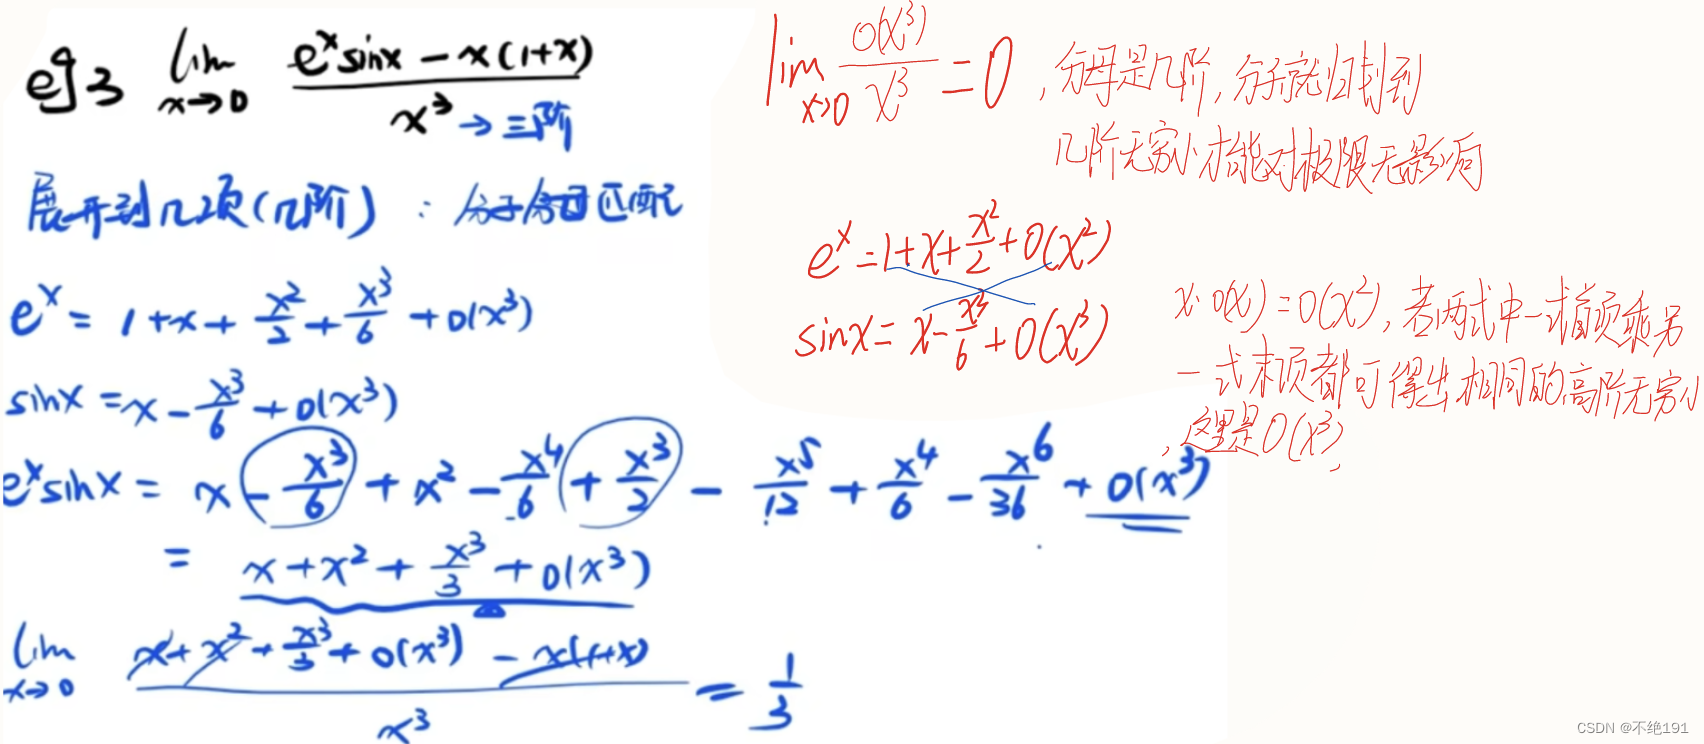 eg 3 lim x→0 (e^x sinx − x(1+x)) / x³ → 三阶
展开到几项(几阶)：分子分母匹配
e^x = 1 + x + x²/2 + x³/6 + o(x³)
sinx = x − x³/6 + o(x³)
e^x sinx = x − x³/6 + x² − x⁴/6 + x³/2 − x⁵/12 + x⁴/6 − x⁶/36 + o(x³)
= x + x² + x³/3 + o(x³)
lim x→0 (x + x² + x³/3 + o(x³) − x(1+x)) / x³ = 1/3
lim x→0 o(x³)/x³ = 0，分母是几阶，分子就归划到
几阶无穷小才能对极限无影响
e^x = 1 + x + x²/2 + o(x²)
sinx = x − x³/6 + o(x³)
x·o(x) = o(x²)，若两式中一式首项乘另
一式末项都可得出相同的高阶无穷小
，这里是o(x³)
CSDN @不绝191